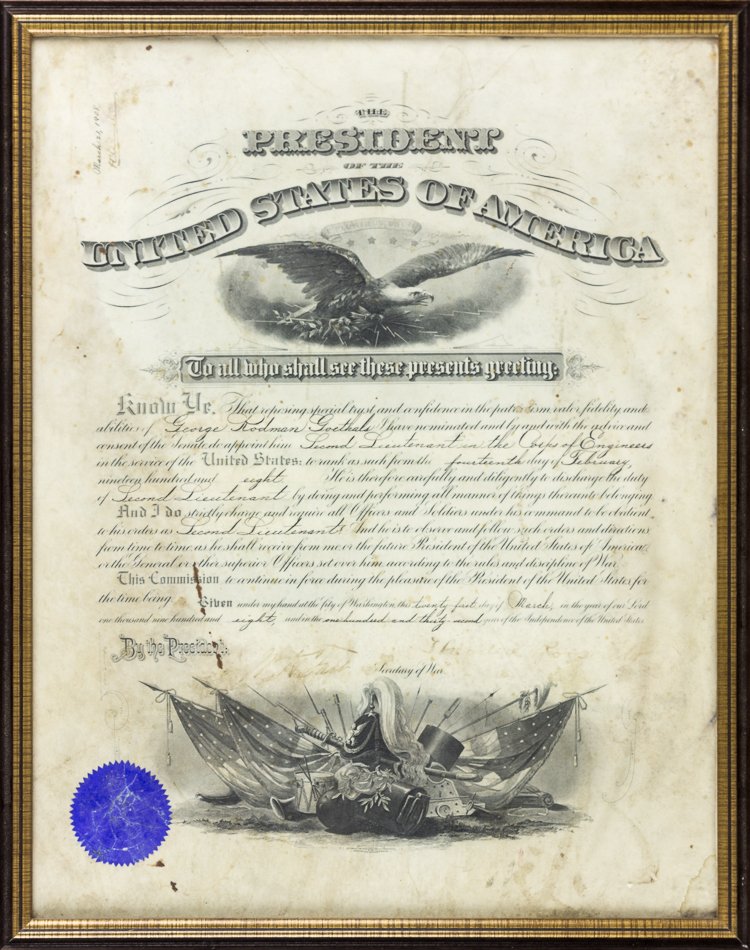 March 21, 1908.
THE
PRESIDENT
OF THE
UNITED STATES OF AMERICA
To all who shall see these presents greeting:
Know Ye, That reposing special trust and confidence in the patriotism valor fidelity and
abilities of George Rodman Goethals I have nominated and by and with the advice and
consent of the Senate do appoint him Second Lieutenant in the Corps of Engineers
in the service of the United States: to rank as such from the fourteenth day of February,
nineteen hundred and eight He is therefore carefully and diligently to discharge the duty
of Second Lieutenant by doing and performing all manner of things thereunto belonging
And I do strictly charge and require all Officers and Soldiers under his command to be obedient
to his orders as Second Lieutenant And he is to observe and follow such orders and directions
from time to time as he shall receive from me or the future President of the United States of America,
or the General or other superior Officers set over him according to the rules and discipline of War.
This Commission to continue in force during the pleasure of the President of the United States for
the time being.
Given under my hand at the City of Washington, this twenty first day of March, in the year of our Lord
one thousand nine hundred and eight, and in the one hundred and thirty second year of the Independence of the United States
By the President:
Secretary of War.